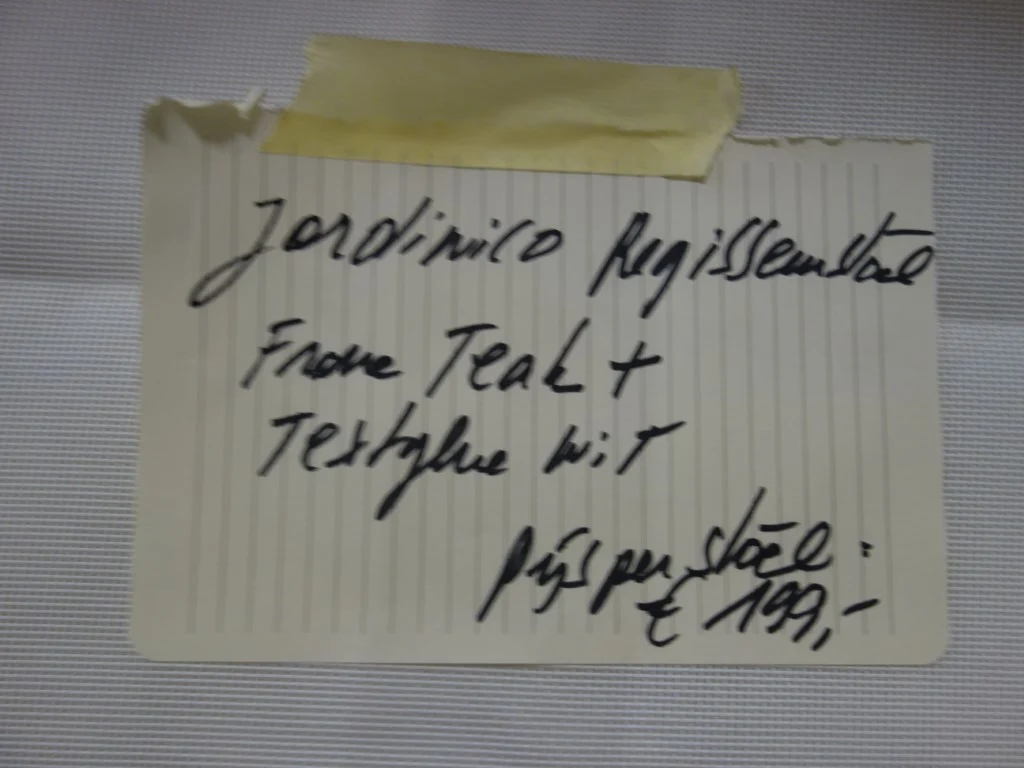 Jardinico Regisseurstoel
Frame Teak +
Textylene wit
Prijs per stoel :
€ 199,-